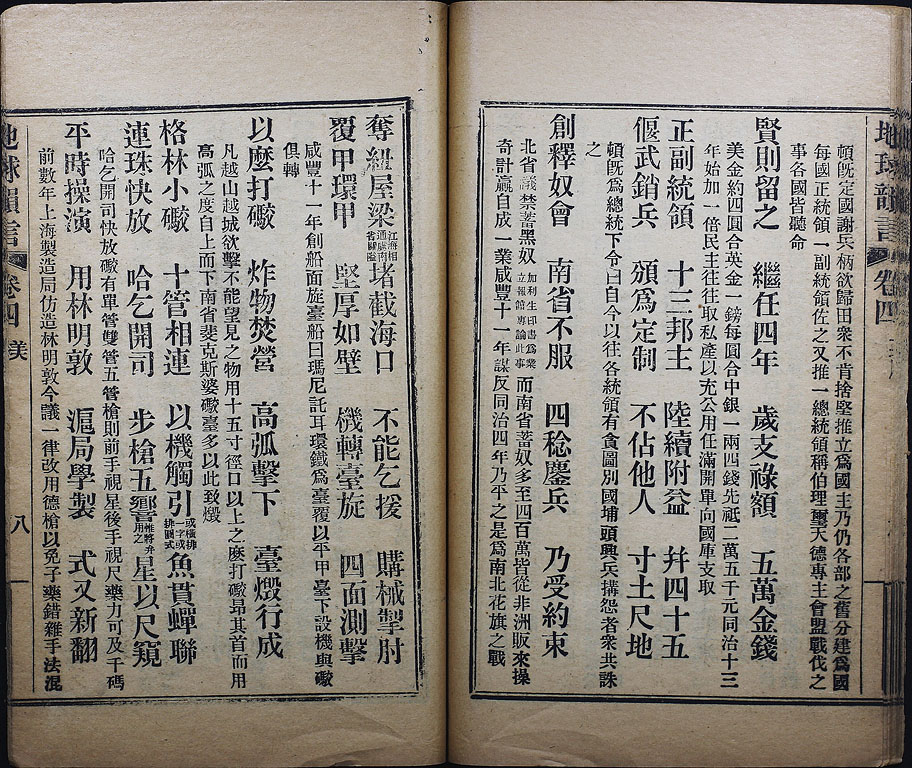 地球韻言 卷四
頓旣定國謝兵柄欲歸田衆不肯捨堅推立爲國主乃仍各部之舊分建爲國
每國正統領一副統領佐之又推一總統領稱伯理璽天德專主會盟戰伐之
事各國皆聽命
賢則留之 繼任四年 歲支祿額 五萬金錢
美金約四圓合英金一鎊每圓合中銀一兩四錢先祗二萬五千元同治十三
年始加一倍民主往往取私產以充公用任滿開單向國庫支取
正副統領 十三邦主 陸續附益 幷四十五
偃武銷兵 頒爲定制 不佔他人 寸土尺地
頓旣爲總統下令曰自今以往各統領有貪圖別國埔頭興兵搆怨者衆共誅
之
創釋奴會 南省不服 四稔鏖兵 乃受約束
北省議禁蓄黑奴加利生印書爲業立報館專論此事而南省蓄奴多至四百萬皆從非洲販來操
奇計贏自成一業咸豐十一年謀反同治四年乃平之是爲南北花旗之戰
奪紐屋梁江海相通處南省關隘堵截海口 不能乞援 購械掣肘
覆甲環甲 堅厚如壁 機轉臺旋 四面測擊
咸豐十一年創船面旋臺船曰瑪尼託耳環鐵爲臺覆以平甲臺下設機與礮
俱轉
以麼打礮 炸物焚營 高弧擊下 臺燬行成
凡越山越城欲擊不能望見之物用十五寸徑口以上之麼打礮昂其首而用
高弧之度自上而下南省斐克斯婆礮臺多以此致燬
格林小礮 十管相連 以機觸引或橫排一字或排圓式魚貫蟬聯
連珠快放 哈乞開司 步槍五響惟將弁用之星以尺窺
哈乞開司快放礮有單管雙管五管槍則前手視星後手視尺藥力可及千碼
平時操演 用林明敦 滬局學製 式又新翻
前數年上海製造局仿造林明敦今議一律改用德槍以免子藥錯雜手法混
地球韻言 卷四 美 八